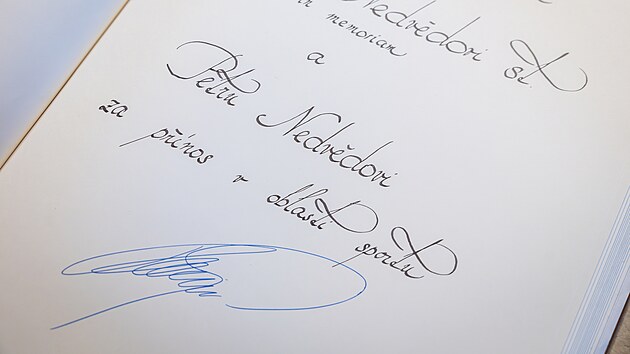 Nedvědovi st.
in memoriam
a
Petru Nedvědovi
za přínos v oblasti sportu